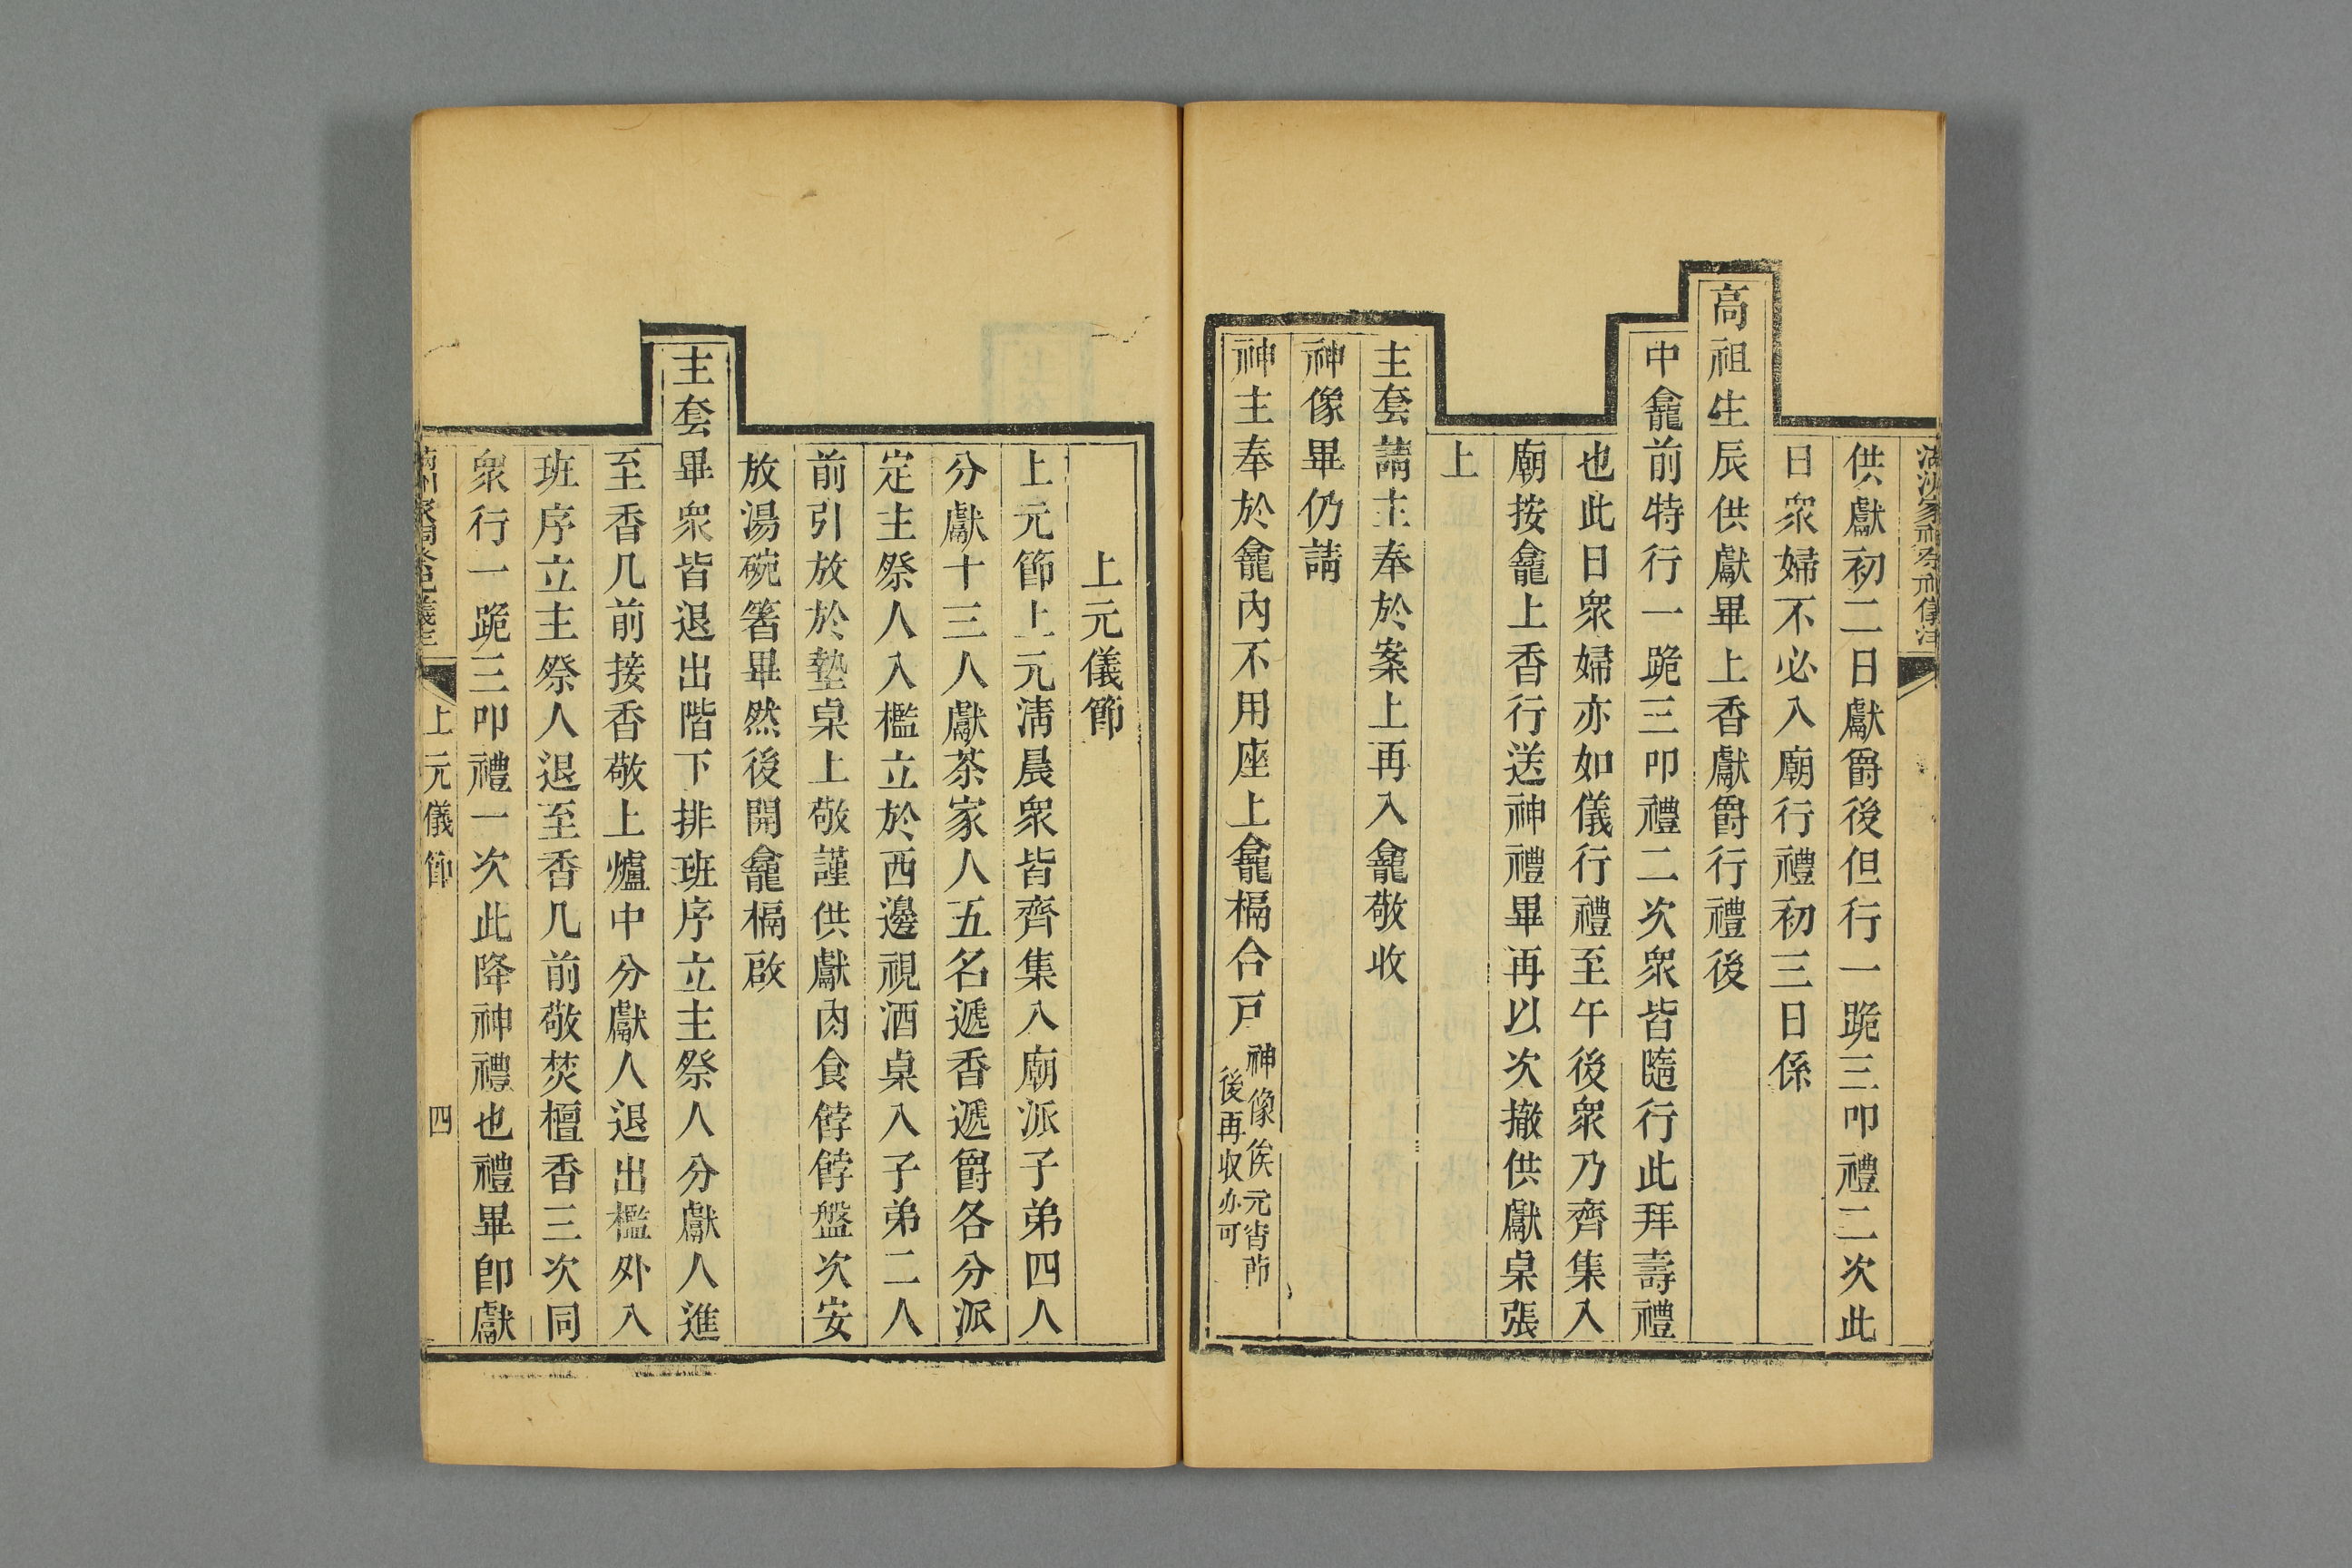 供獻初二日獻爵後但行一跪三叩禮二次此
日衆婦不必入廟行禮初三日係
高祖生辰供獻畢上香獻爵行禮後
中龕前特行一跪三叩禮二次衆皆隨行此拜壽禮
也此日衆婦亦如儀行禮至午後衆乃齊集入
廟按龕上香行送神禮畢再以次撤供獻桌張
上
主套請主奉於案上再入龕敬收
神像畢仍請
神主奉於龕內不用座上龕槅合戸
神像俟元宵節
後再收亦可
上元儀節
上元節上元清晨衆皆齊集入廟派子弟四人
分獻十三人獻茶家人五名遞香遞爵各分派
定主祭人入檻立於西邊視酒桌入子弟二人
前引放於墊桌上敬謹供獻肉食餑餑盤次安
放湯碗箸畢然後開龕槅啟
主套畢衆皆退出階下排班序立主祭人分獻人進
至香几前接香敬上爐中分獻人退出檻外入
班序立主祭人退至香几前敬焚檀香三次同
衆行一跪三叩禮一次此降神禮也禮畢卽獻
上元儀節
四